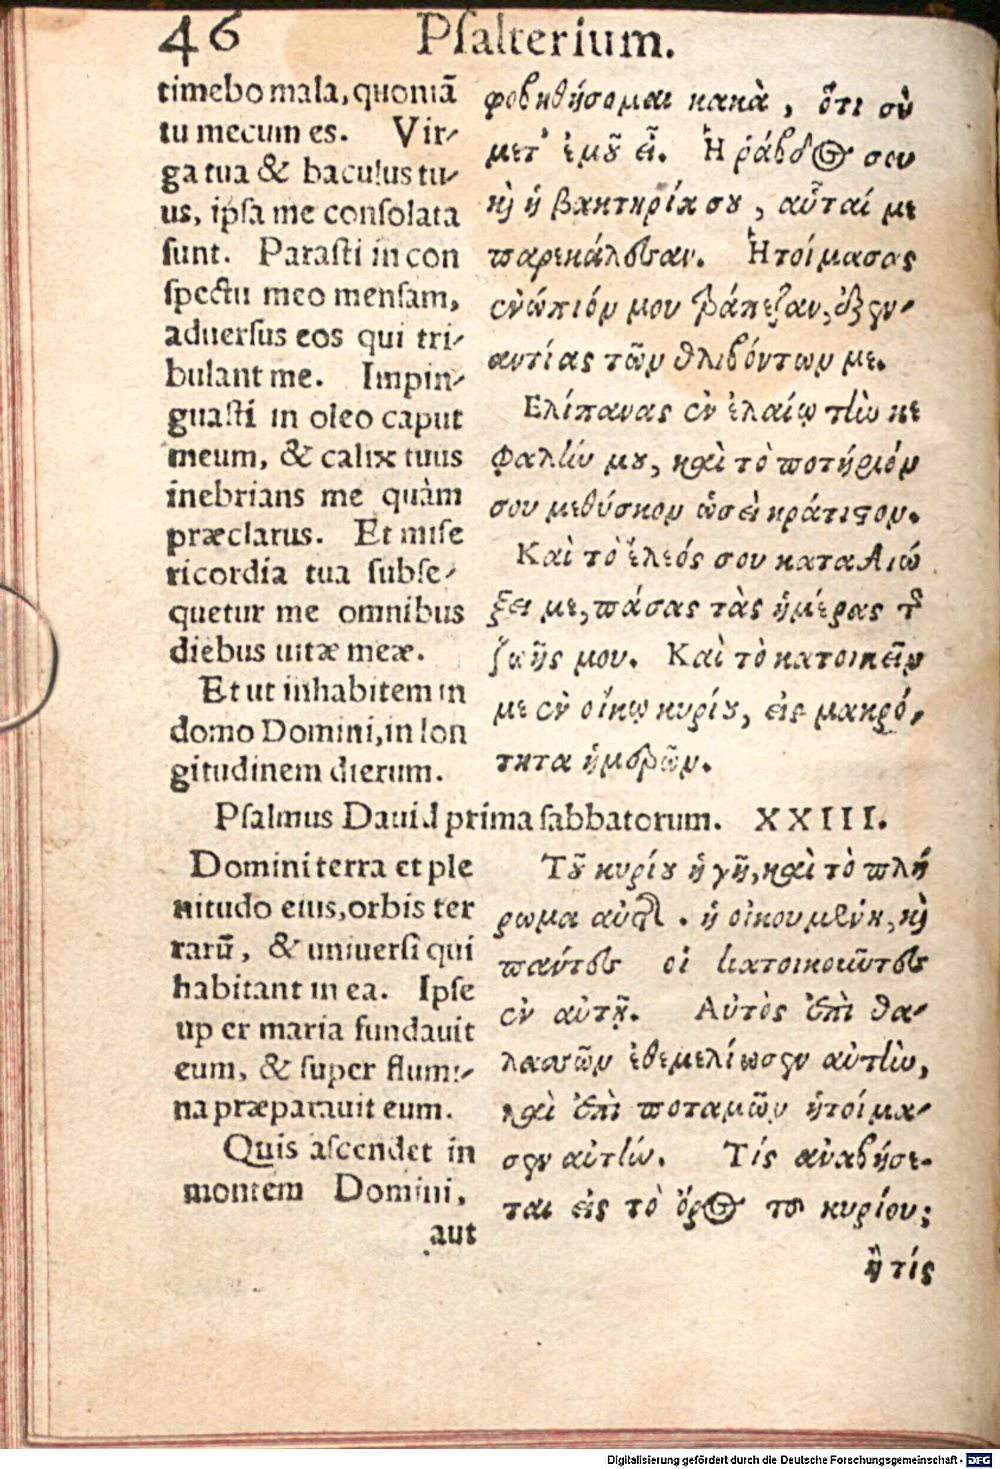 46 Psalterium.
timebo mala, quoniā
tu mecum es. Vir-
ga tua & baculus tu-
us, ipsa me consolata
sunt. Parasti in con
spectu meo mensam,
aduersus eos qui tri-
bulant me. Impin-
guasti in oleo caput
meum, & calix tuus
inebrians me quàm
præclarus. Et mise
ricordia tua subse-
quetur me omnibus
diebus uitæ meæ.
Et ut inhabitem in
domo Domini, in lon
gitudinem dierum.
φοβηθήσομαι κακὰ, ὅτι σὺ
μετ' ἐμοῦ εἶ. Ἡ ῥάβδος σου
καὶ ἡ βακτηρία σου, αὗταί με
παρεκάλεσαν. Ἡτοίμασας
ἐνώπιόν μου τράπεζαν, ἐξεν-
αντίας τῶν θλιβόντων με.
Ελίπανας ἐν ἐλαίῳ τὴν κε
φαλήν μου, καὶ τὸ ποτήριόν
σου μεθύσκον ὡσεὶ κράτιστον.
Καὶ τὸ ἔλεός σου καταδιώ
ξει με, πάσας τὰς ἡμέρας τῆς
ζωῆς μου. Καὶ τὸ κατοικεῖν
με ἐν οἴκῳ κυρίου, εἰς μακρό-
τητα ἡμερῶν.
Psalmus Dauid prima sabbatorum. XXIII.
Domini terra et ple
nitudo eius, orbis ter
rarū, & uniuersi qui
habitant in ea. Ipse
up er maria fundauit
eum, & super flumi-
na præparauit eum.
Quis ascendet in
montem Domini,
aut
Τοῦ κυρίου ἡ γῆ, καὶ τὸ πλή
ρωμα αὐτῆς. ἡ οἰκουμένη, καὶ
πάντες οἱ κατοικοῦντες
ἐν αὐτῇ. Αὐτὸς ἐπὶ θα-
λασσῶν ἐθεμελίωσεν αὐτὴν,
καὶ ἐπὶ ποταμῶν ἡτοίμα-
σεν αὐτήν. Τίς ἀναβήσε-
ται εἰς τὸ ὄρος τοῦ κυρίου;
ἢ τίς
Digitalisierung gefördert durch die Deutsche Forschungsgemeinschaft - DFG